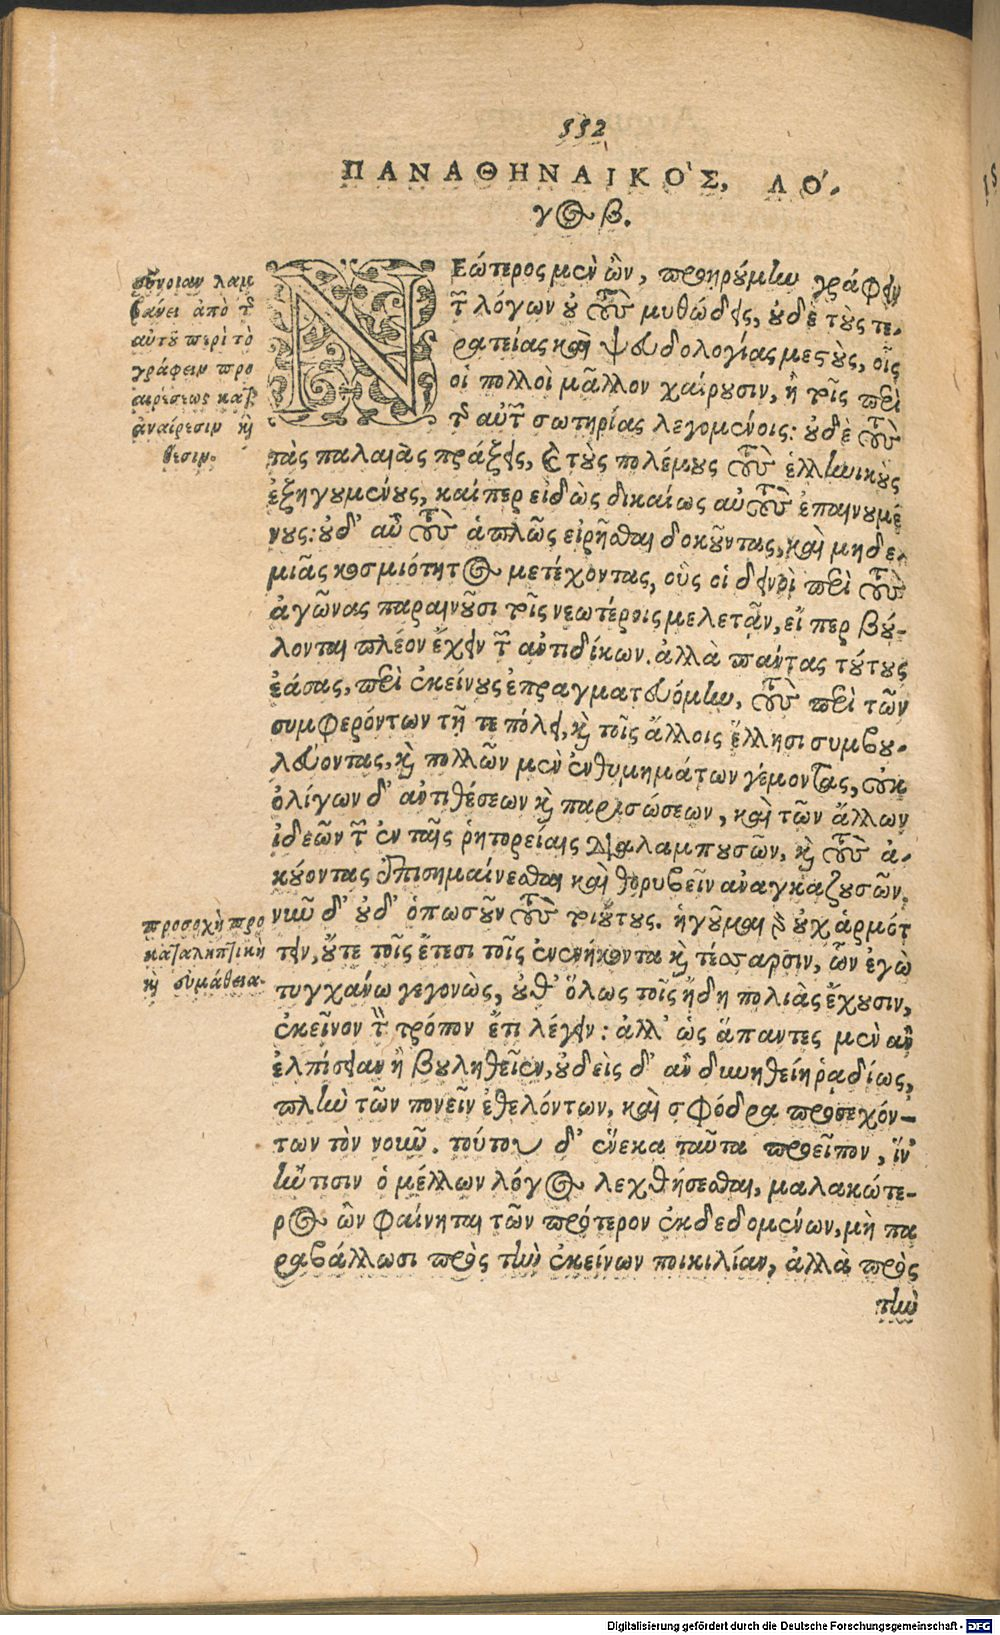 552
ΠΑΝΑΘΗΝΑΙΚΟ'Σ, ΛΟ'-
γος β.
σύνοιαν λαμ
βάνει ἀπὸ τῆς
αὐτοῦ περὶ τὸ
γράφειν προ
αιρέσεως κατ'
ἀναίρεσιν κὶ
θεσιν.
ΝΕώτερος μὲν ὢν, προῃρούμην γράφειν
τῶν λόγων οὐ τοὺς μυθώδεις, οὐδὲ τοὺς τε-
ρατείας καὶ ψευδολογίας μεστοὺς, οἷς
οἱ πολλοὶ μᾶλλον χαίρουσιν, ἢ τοῖς περὶ
τῆς αὐτῶν σωτηρίας λεγομένοις: οὐδὲ τοὺς
τὰς παλαιὰς πράξεις, καὶ τοὺς πολέμους τοὺς ἑλληνικοὺς
ἐξηγουμένους, καίπερ εἰδὼς δικαίως αὐτοὺς ἐπαινουμέ
νους: οὐδ' αὖ τοὺς ἁπλῶς εἰρῆσθαι δοκοῦντας, καὶ μηδε-
μιᾶς κοσμιότητος μετέχοντας, οὓς οἱ δεινοὶ περὶ τοὺς
ἀγῶνας παραινοῦσι τοῖς νεωτέροις μελετᾷν, εἴ περ βού-
λονται πλέον ἔχειν τῶν ἀντιδίκων. ἀλλὰ πάντας τούτους
ἐάσας, περὶ ἐκείνους ἐπραγματευόμην, τοὺς περὶ τῶν
συμφερόντων τῇ τε πόλει, κὶ τοῖς ἄλλοις ἕλλησι συμβου-
λεύοντας, κὶ πολλῶν μὲν ἐνθυμημάτων γέμοντας, οὐκ
ὀλίγων δ' ἀντιθέσεων κὶ παρισώσεων, καὶ τῶν ἄλλων
ἰδεῶν τῶν ἐν ταῖς ῥητορείαις διαλαμπουσῶν, κὶ τοὺς ἀ-
κούοντας ἐπισημαίνεσθαι καὶ θορυβεῖν ἀναγκαζουσῶν.
προσοχὴ προ
καταληπτικὴ
κὶ συμάθεια.
νυνῦ δ' οὐδ' ὁπωσοῦν τοὺς τοιούτους. ἡγοῦμαι γὰρ οὐχ ἁρμότ
τειν, οὔτε τοῖς ἔτεσι τοῖς ἐνενήκοντα κὶ τέσσαρσιν, ὧν ἐγὼ
τυγχάνω γεγονὼς, οὐθ' ὅλως τοῖς ἤδη πολιὰς ἔχουσιν,
ἐκεῖνον τὸν τρόπον ἔτι λέγειν: ἀλλ' ὡς ἅπαντες μὲν ἂν
ἐλπίσειαν ἢ βουληθεῖεν, οὐδεὶς δ' ἂν δυνηθείη ῥᾳδίως,
πλὴν τῶν πονεῖν ἐθελόντων, καὶ σφόδρα προσεχόν-
των τὸν νοῦν. τούτου δ' ἕνεκα ταῦτα προεῖπον, ἵν'
ἤν τισιν ὁ μέλλων λόγος λεχθήσεσθαι, μαλακώτε-
ρος ὢν φαίνηται τῶν πρότερον ἐκδεδομένων, μὴ πα
ραβάλλωσι πρὸς τὴν ἐκείνων ποικιλίαν, ἀλλὰ πρὸς
τὴν
Digitalisierung gefördert durch die Deutsche Forschungsgemeinschaft - DFG